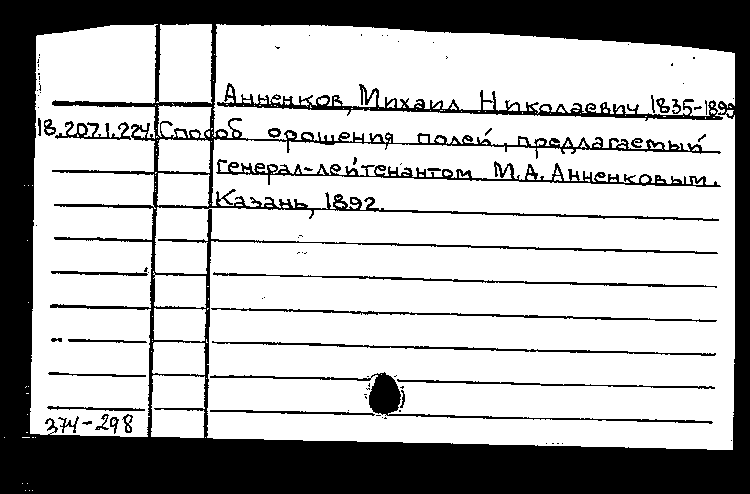 Анненков, Михаил Николаевич, 1835-1899
18.207.1.224. Способ орошения полей, предлагаемый
генерал-лейтенантом М.А. Анненковым.
Казань, 1892.
374-298